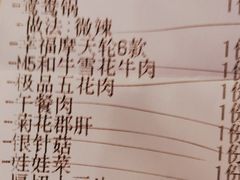 鸳鸯锅
做法:微辣
幸福摩天轮6款 1份
M5和牛雪花牛肉 1份
极品五花肉 1份
午餐肉 1份
菊花郡肝 1份
银针菇 1份
娃娃菜 1份